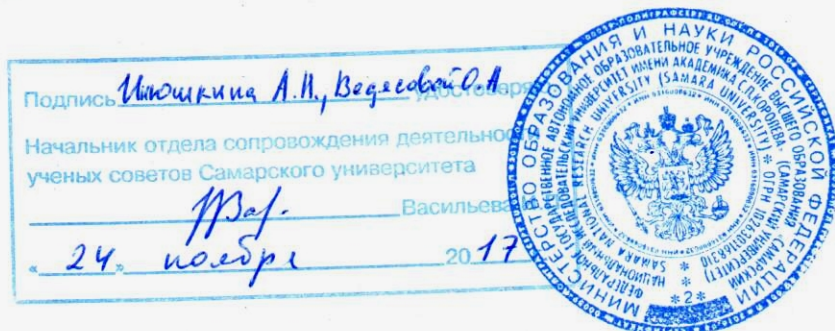 Подпись Илюшкина А.П., Ведясовой О.А. удостоверяю
Начальник отдела сопровождения деятельности
ученых советов Самарского университета
Васильева
« 24 » ноября 2017
МИНИСТЕРСТВО ОБРАЗОВАНИЯ И НАУКИ РОССИЙСКОЙ ФЕДЕРАЦИИ
ФЕДЕРАЛЬНОЕ ГОСУДАРСТВЕННОЕ АВТОНОМНОЕ ОБРАЗОВАТЕЛЬНОЕ УЧРЕЖДЕНИЕ ВЫСШЕГО ОБРАЗОВАНИЯ
НАЦИОНАЛЬНЫЙ ИССЛЕДОВАТЕЛЬСКИЙ УНИВЕРСИТЕТ ИМЕНИ АКАДЕМИКА С.П.КОРОЛЕВА (САМАРСКИЙ УНИВЕРСИТЕТ)
SAMARA NATIONAL RESEARCH UNIVERSITY (SAMARA UNIVERSITY) * ОГРН 1026301168310
*2*